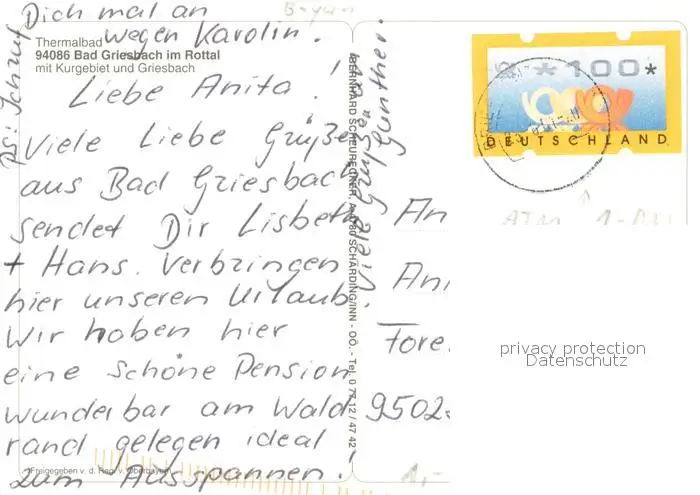 PS: Ich ruf
Dich mal an
wegen Karolin.
Bayern
Thermalbad
94086 Bad Griesbach im Rottal
mit Kurgebiet und Griesbach
Liebe Anita!
Viele Liebe Grüße
aus Bad Griesbach
sendet Dir Lisbeth
+ Hans. Verbringen
hier unseren Urlaub.
Wir haben hier
eine schöne Pension
wunderbar am Wald
rand gelegen ideal
zum Ausspannen!
Freigegeben v. d. Reg. v. Oberbayern
Viele Grüße
Günther.
BERNHARD SCHEURECKER, A-4780 SCHÄRDING/INN - OÖ. - Tel. 0 77 12 / 47 42
*100*
DEUTSCHLAND
ATM
An
Ani
Fore
9502
1,-
privacy protection
Datenschutz